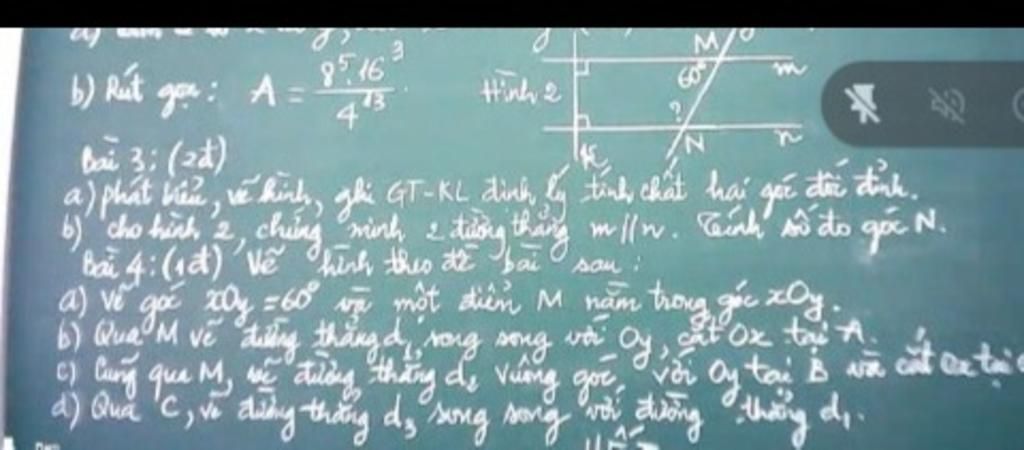 b) Rút gọn : A = 8⁵.16³ / 4¹³ . Hình 2
M
m
60°
?
N
n
Bài 3: (2đ)
a) phát biểu, vẽ hình, ghi GT-KL định lý tính chất hai góc đối đỉnh.
b) cho hình 2, chứng minh 2 đường thẳng m // n. Tính số đo góc N.
Bài 4: (1đ) Vẽ hình theo đề bài sau :
a) Vẽ góc xOy = 60° và một điểm M nằm trong góc xOy.
b) Qua M vẽ đường thẳng d₁ song song với Oy, cắt Ox tại A.
c) Cũng qua M, vẽ đường thẳng d₂ vuông góc với Oy tại B và cắt Ox tại C
d) Qua C, vẽ đường thẳng d₃ song song với đường thẳng d₁.